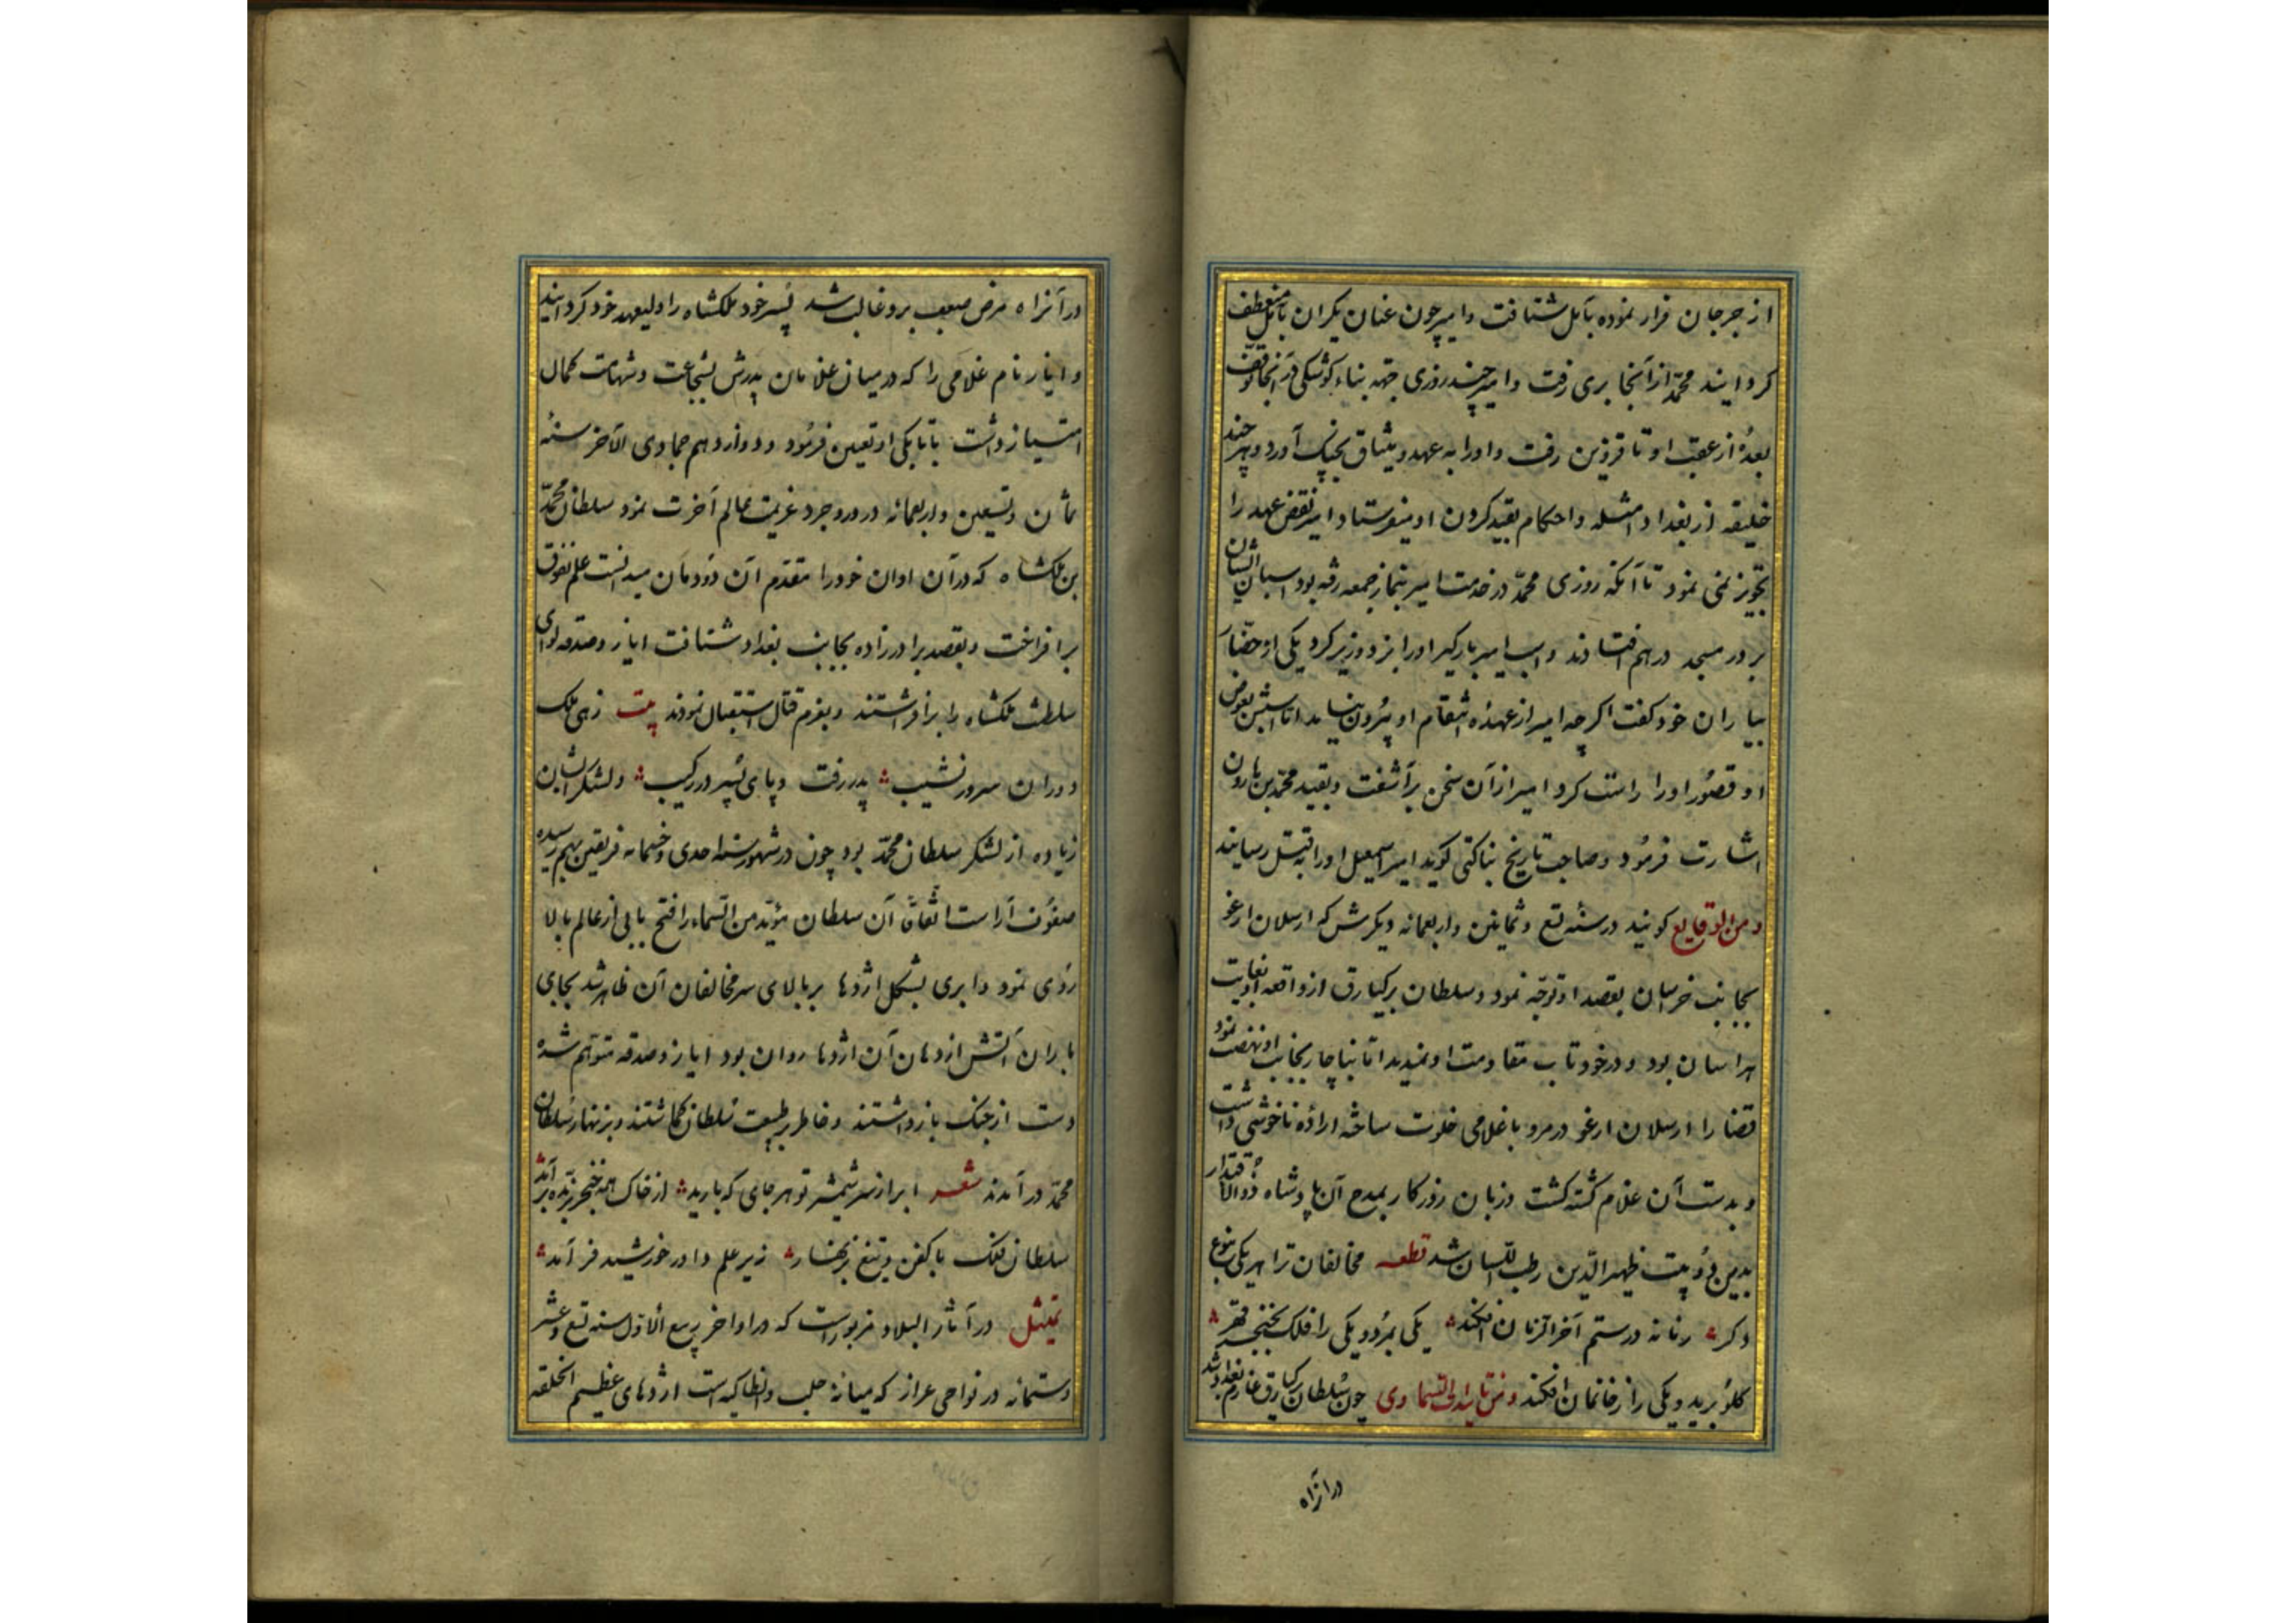 از جرجان فرار نموده بآمل شتافت و امیر چون عنان یکران بآمل منعطف
کردانید محمّد از آنجا بری رفت و امیر چند روزی جهة بناء کوشکی در آنجا توقّف
بعدهٔ از عقب او تا قزوین رفت و اورا به عهد و میثاق بچنک آورد و هر چند
خلیفه از بغداد امثله و احکام بقید کردن او میفرستاد امیر نقض عهد را
تجویز نمی نمود تا آنکه روزی محمّد در خدمت امیر بنماز جمعه رفته بود اسبان ایشان
بر در مسجد درهم افتادند و اسب امیر بارگیر اورا بزد و زیر کرد یکی از حضّار
بیاران خود کفت اکرچه امیر از عهدهٔ انتقام او بیرون نیاید اما اسبش بعوض
او قصور اورا راست کرد امیر از آن سخن برآشفت و بقید محمّد بن هارون
اشارت فرمود و صاحب تاریخ بناکتی کوید امیر اسمعیل اورا به قتل رسانید
و من الوقایع کویند در سنهٔ تسع و ثمانین و اربعمائه دیکرش که ارسلان ارغو
بجانب خراسان بقصد او توجّه نمود و سلطان برکیارق از واقعه او بغایت
هراسان بود و در خود تاب مقاومت او نمیدید اما بناچار بجانب او نهضت نمود
قضا را ارسلان ارغو در مرو با غلامی خلوت ساخته ارادهٔ ناخوشی داشت
و بدست آن غلام کشته کشت و زبان روزکار بمدح آن پادشاه ذوالاقتدار
بدین دو بیت ظهیر الدّین رطب اللّسان شد قطعه مخالفان ترا هر یکی بنوع
دکر زمانه در ستم آخر الزمان افکند یکی بمرد و یکی را فلک بخنجر قهر
کلو برید و یکی را ز خانمان افکند و من تایید السماوی چون سلطان برکیارق عازم بغداد شد
در آنراه
در آنراه مرض صعب برو غالب شد پسر خود ملکشاه را ولیعهد خود کردانید
و ایاز نام غلامی را که در میان غلامان پدرش بشجاعت و شهامت کمال
امتیاز داشت باتابکی او تعین فرمود و دوازدهم جمادی الآخر سنهٔ
ثمان و تسعین و اربعمائه در وروجرد عزیمت عالم آخرت نمود سلطان محمّد
بن ملکشاه که در آن اوان خودرا مقدّم آن دودمان میدانست علم تفوق
برافراخت و بقصد برادرزاده بجانب بغداد شتافت ایاز و صدقه لوای
سلطنت ملکشاه را برافراشتند و بعزم قتال استقبال نمودند بیت زهی ملک
دوران سر در نشیب پدر رفت و پای پسر در رکیب و لشکر ایشان
زیاده از لشکر سلطان محمّد بود چون در شهور سنه احدی و خمسمائه فریقین بهم رسیده
صفوف آراست اتّفاقاً آن سلطان مؤیّد من السّماء را فتح بابی از عالم بالا
روی نمود و ابری بشکل اژدها بر بالای سر مخالفان آن ظاهر شد بجای
باران آتش از دهان آن اژدها روان بود ایاز و صدقه متوهم شده
دست از جنک بازداشتند و خاطر بر طبیعت سلطان کماشتند و بزنهار سلطان
محمّد درآمدند شعر ابر از سر شمشیر تو هر جای که بارید از خاک همه خنجر برّیده برآید
سلطان فلک با کفن و تیغ بزنهار زیر علم داور خورشید فر آمد
تمثیل در آثار البلاد مزبورست که در اواخر ربیع الاوّل سنه تسع و عشر
و ستمائه در نواحی عزاز که میانهٔ حلب و انطاکیه است اژدهای عظیم الخلقه